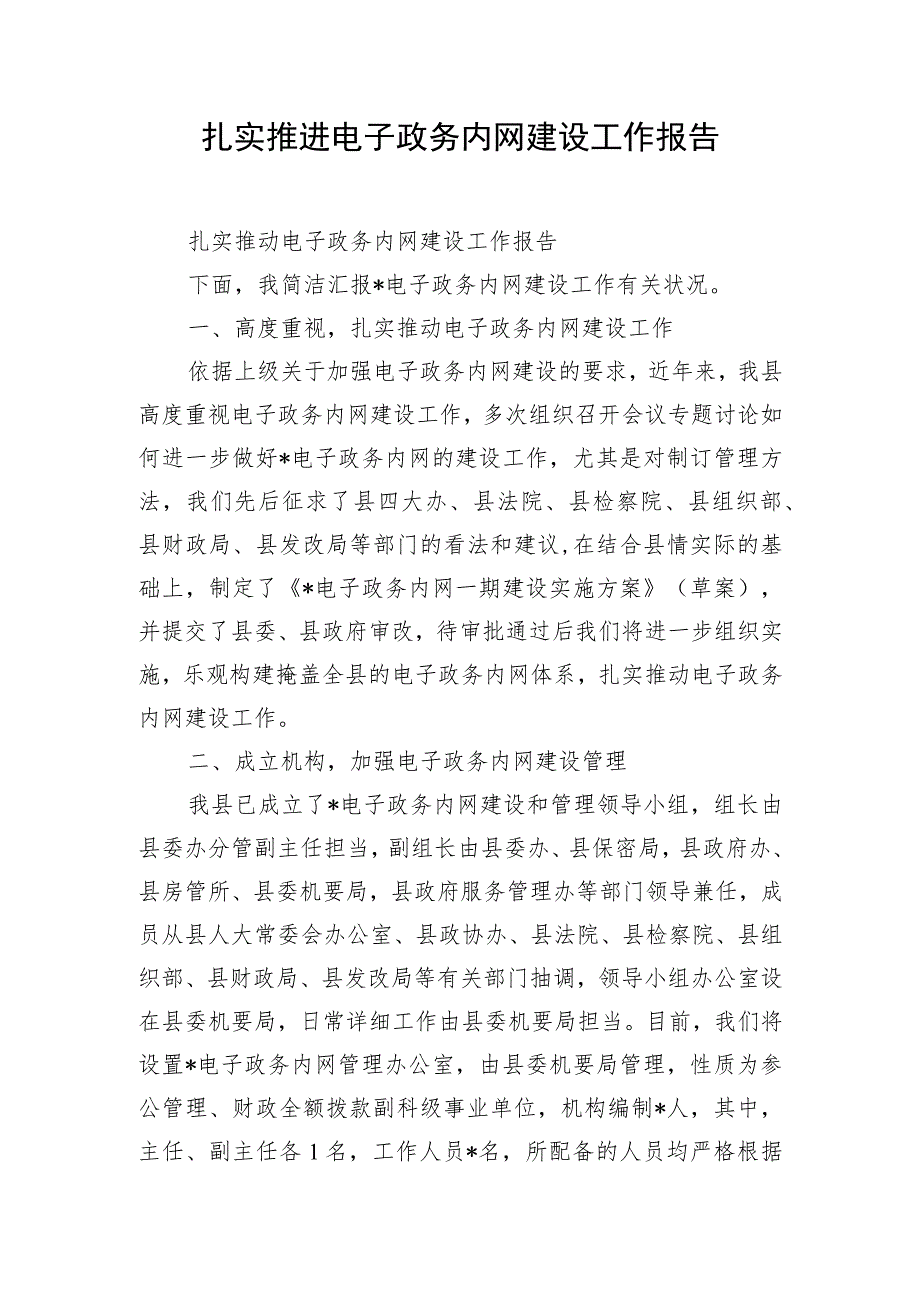 扎实推进电子政务内网建设工作报告
扎实推动电子政务内网建设工作报告
下面，我简洁汇报*电子政务内网建设工作有关状况。
一、高度重视，扎实推动电子政务内网建设工作
依据上级关于加强电子政务内网建设的要求，近年来，我县
高度重视电子政务内网建设工作，多次组织召开会议专题讨论如
何进一步做好*电子政务内网的建设工作，尤其是对制订管理方
法，我们先后征求了县四大办、县法院、县检察院、县组织部、
县财政局、县发改局等部门的看法和建议,在结合县情实际的基
础上，制定了《*电子政务内网一期建设实施方案》（草案），
并提交了县委、县政府审改，待审批通过后我们将进一步组织实
施，乐观构建掩盖全县的电子政务内网体系，扎实推动电子政务
内网建设工作。
二、成立机构，加强电子政务内网建设管理
我县已成立了*电子政务内网建设和管理领导小组，组长由
县委办分管副主任担当，副组长由县委办、县保密局，县政府办、
县房管所、县委机要局，县政府服务管理办等部门领导兼任，成
员从县人大常委会办公室、县政协办、县法院、县检察院、县组
织部、县财政局、县发改局等有关部门抽调，领导小组办公室设
在县委机要局，日常详细工作由县委机要局担当。目前，我们将
设置*电子政务内网管理办公室，由县委机要局管理，性质为参
公管理、财政全额拨款副科级事业单位，机构编制*人，其中，
主任、副主任各1名，工作人员*名，所配备的人员均严格根据